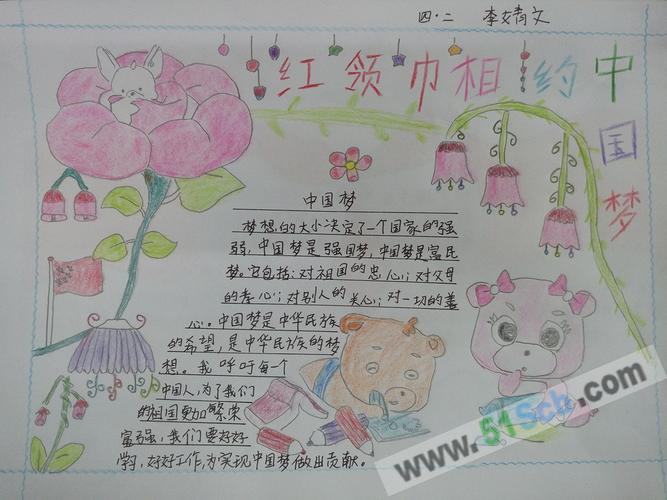 四·二 李婧文
红领巾相约中国梦
中国梦
梦想的大小决定了一个国家的强
弱,中国梦是强国梦,中国梦是富民
梦。它包括:对祖国的忠心;对父母
的孝心;对别人的关心;对一切的善
心。中国梦是中华民族
的希望,是中华民族的梦
想。我呼吁每一个
中国人,为了我们
的祖国更加繁荣
富强,我们要好好
学习,好好工作,为实现中国梦做出贡献。
www.51Sch.com